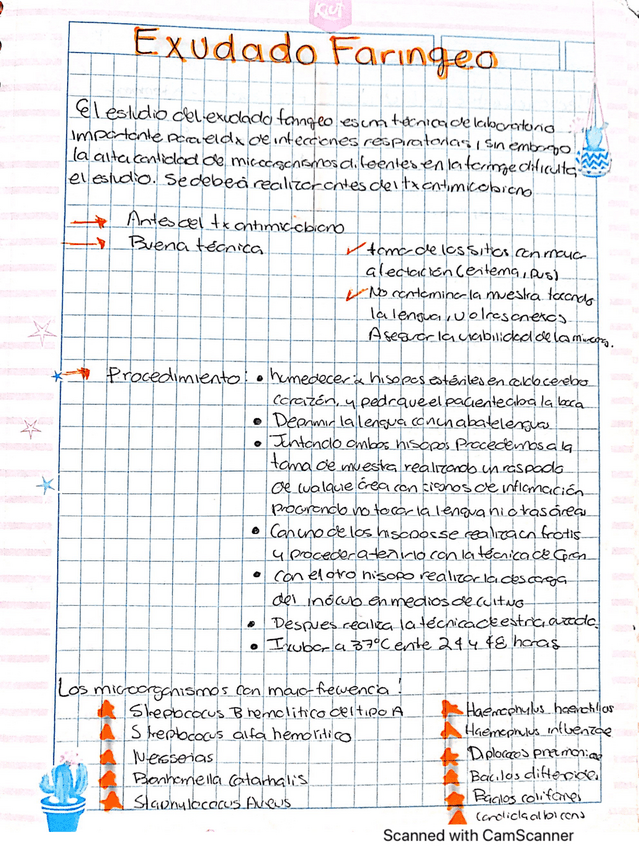 Kiut
Exudado Faringeo
El estudio del exudado faringeo es una técnica de laboratorio
importante para el dx de infecciones respiratorias, sin embargo
la alta cantidad de microorganismos diferentes en la faringe dificulta
el estudio. Se deberá realizar antes del tx antimicrobiano
Antes del tx antimicrobiano
Buena técnica
toma de los sitios con mayor
afectación (eritema, pus)
No contaminar la muestra tocando
la lengua, u otros anexos
Asegurar la viabilidad de la muestra.
Procedimiento:
• humedecer 2 hisopos estériles en caldo cerebro
corazón, y pedir que el paciente abra la boca
• Deprimir la lengua con un abatelengua
• Juntando ambos hisopos Procedemos a la
toma de muestra realizando un raspado
de cualquier área con signos de inflamación
procurando no tocar la lengua ni otras áreas
• Con uno de los hisopos se realiza un frotis
y proceder a teñirlo con la técnica de Gram
• Con el otro hisopo realizar la descarga
del inóculo en medios de cultivo
• Despues realiza la técnica de estria
• Incubar a 37°C entre 24 y 48 horas
Los microorganismos con mayor frecuencia!
Streptococus B hemolitico del tipo A
Streptococus alfa hemolitico
Neisserias
Branhamella Catarrhalis
Staphylococus Aureus
Haemophylus
Haemophylus influenzae
Diplococos pneumoniae
Bacilos difteroides
Bacilos coliformes
Candida albicans
Scanned with CamScanner